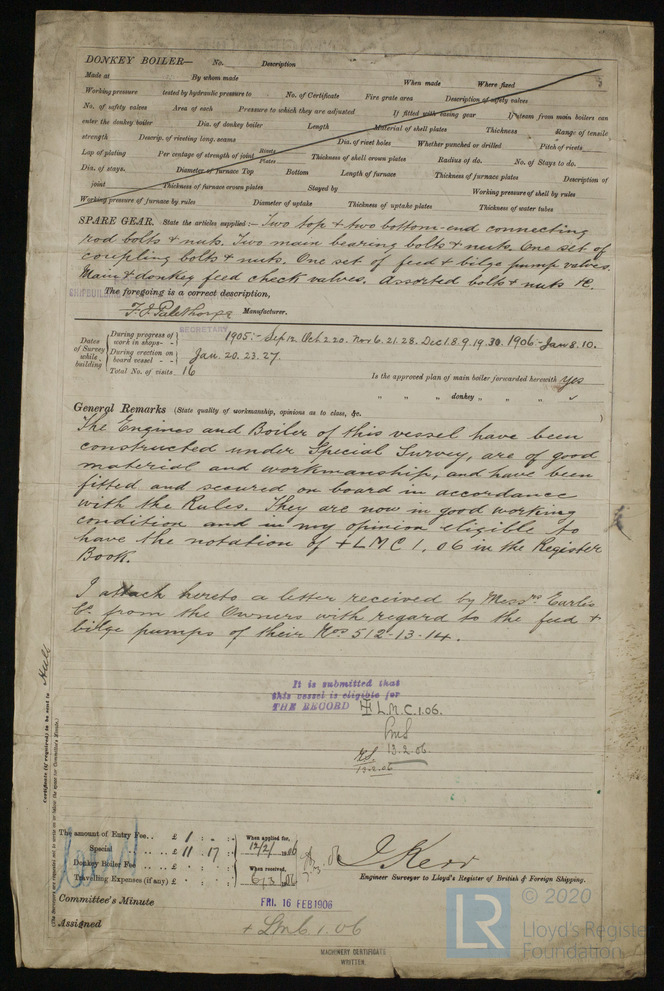 DONKEY BOILER— No. Description
Made at By whom made When made Where fixed
Working pressure tested by hydraulic pressure to No. of Certificate Fire grate area Description of safety valves
No. of safety valves Area of each Pressure to which they are adjusted If fitted with easing gear If steam from main boilers can
enter the donkey boiler Dia. of donkey boiler Length Material of shell plates Thickness Range of tensile
strength Descrip. of riveting long. seams Dia. of rivet holes Whether punched or drilled Pitch of rivets
Lap of plating Per centage of strength of joint Rivets Plates Thickness of shell crown plates Radius of do. No. of Stays to do.
Dia. of stays. Diameter of furnace Top Bottom Length of furnace Thickness of furnace plates Description of
joint Thickness of furnace crown plates Stayed by Working pressure of shell by rules
Working pressure of furnace by rules Diameter of uptake Thickness of uptake plates Thickness of water tubes
SPARE GEAR. State the articles supplied:— Two top & two bottom-end connecting
rod bolts & nuts. Two main bearing bolts & nuts. One set of
coupling bolts & nuts. One set of feed & bilge pump valves.
Main & donkey feed check valves. Assorted bolts & nuts &c.
The foregoing is a correct description,
Manufacturer.
SECRETARY
Dates of Survey while building
During progress of work in shops - - 1905:- Sep 12. Oct 2. 20. Nov 6. 21. 28. Dec 1. 8. 9. 19. 30. 1906:- Jan 8. 10.
During erection on board vessel - - Jan. 20. 23. 27.
Total No. of visits 16
Is the approved plan of main boiler forwarded herewith yes
" " " donkey " " "
General Remarks (State quality of workmanship, opinions as to class, &c.
The Engines and Boiler of this vessel have been
constructed under Special Survey, are of good
material and workmanship, and have been
fitted and secured on board in accordance
with the Rules. They are now in good working
condition and in my opinion eligible to
have the notation of + LMC 1. 06 in the Register
Book.
I attach hereto a letter received by Messrs Earle's
Co. from the Owners with regard to the feed &
bilge pumps of their Nos 512-13-14.
It is submitted that
this vessel is eligible for
THE RECORD + L.M.C. 1.06.
13.2.06
13.2.06
Certificate (if required) to be sent to Hull
(The Surveyors are requested not to write on or below the space for Committee's Minute.)
The amount of Entry Fee.. £ 1 : - : When applied for,
Special £ 11 : 17 : 12/2/1906
Donkey Boiler Fee £ : : When received,
Travelling Expenses (if any) £ : : 6/3/06
J. Kerr
Engineer Surveyor to Lloyd's Register of British & Foreign Shipping.
Committee's Minute FRI. 16 FEB 1906
Assigned + LMC 1. 06
MACHINERY CERTIFICATE
WRITTEN.
© 2020
LR Lloyd's Register
Foundation